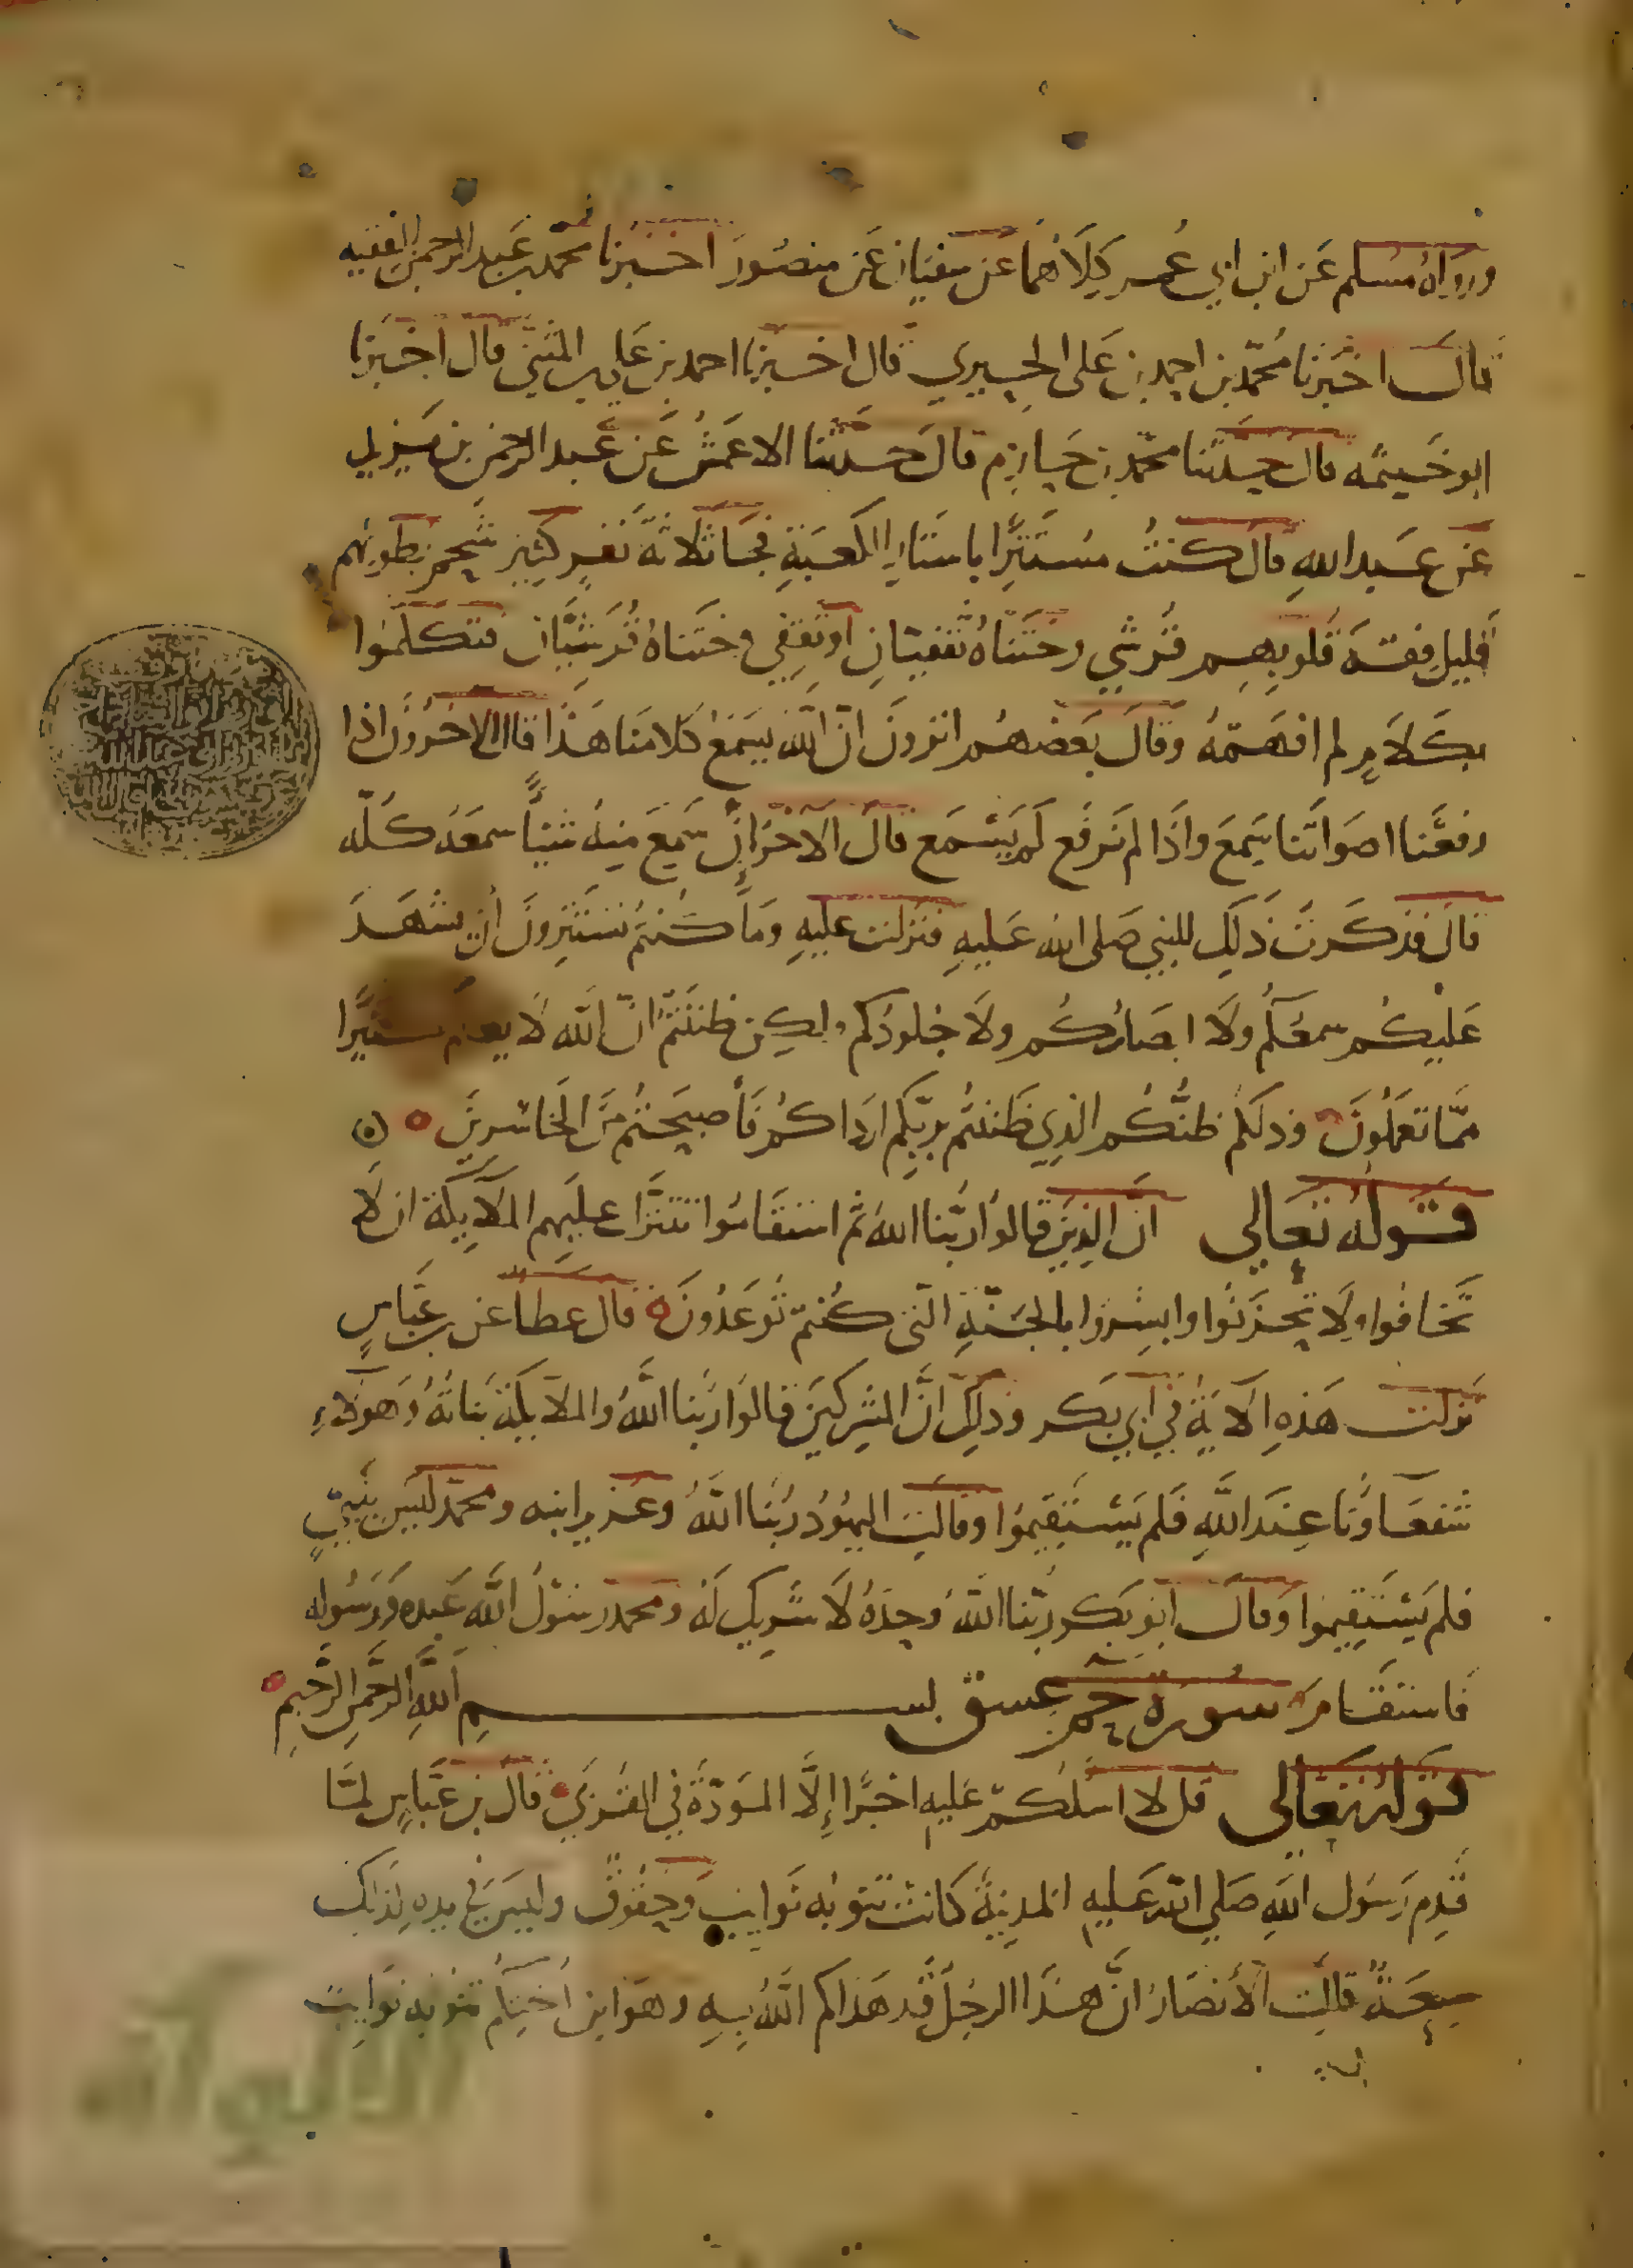 ورواه مسلم عن ابن ابي عمر كلاهما عن سفيان عن منصور اخبرنا محمد بن عبد الرحمن الفقيه
قال اخبرنا محمد بن احمد بن على الحيري قال اخبرنا احمد بن علي بن المثنى قال اخبرنا
ابو خيثمه قال حدثنا محمد بن حازم قال حدثنا الاعمش عن عبد الرحمن بن يزيد
عن عبد الله قال كنت مستترا باستار الكعبة فجا ثلاثة نفر كثير شحم بطونهم
قليل فقه قلوبهم قرشي وختناه ثقفيان او ثقفي وختناه قرشيان فتكلموا
بكلام لم افهمه وقال بعضهم اترون ان الله يسمع كلامنا هذا قال الاخرون اذا
رفعنا اصواتنا يسمع واذا لم نرفع لم يسمع قال الاخر ان سمع منه شيئا سمعه كله
قال فذكرت ذلك للنبي صلى الله عليه فنزلت عليه وما كنتم تستترون أن يشهد
عليكم سمعكم ولا ابصاركم ولا جلودكم ولكن ظننتم ان الله لا يعلم كثيرا
مما تعملون وذلكم ظنكم الذي ظننتم بربكم ارداكم فأصبحتم من الخاسرين
قوله تعالي ان الذين قالوا ربنا الله ثم استقاموا تتنزل عليهم الملايكة ان لا
تخافوا ولا تحزنوا وابشروا بالجنة التى كنتم توعدون قال عطا عن بن عباس
نزلت هذه الاية في أبي بكر وذلك ان المشركين قالوا ربنا الله والملايكة بناته وهولاء
شفعاونا عند الله فلم يستقيموا وقالت اليهود ربنا الله وعزير ابنه ومحمد ليس بنبي
فلم يستقيموا وقال ابو بكر ربنا الله وحده لا شريك له ومحمد رسول الله عبده ورسوله
فاستقام سورة حم عسق بسم الله الرحمن الرحيم
قوله تعالى قل لا اسلكم عليه اجرا إلا المودة في القربي قال بن عباس لما
قدم رسول الله صلي الله عليه المدينة كانت تنوبه نوايب وحقوق وليس في يده لذلك
سعة قالت الأنصار ان هذا الرجل قد هداكم الله به وهو ابن أختكم تنوبه نوايب